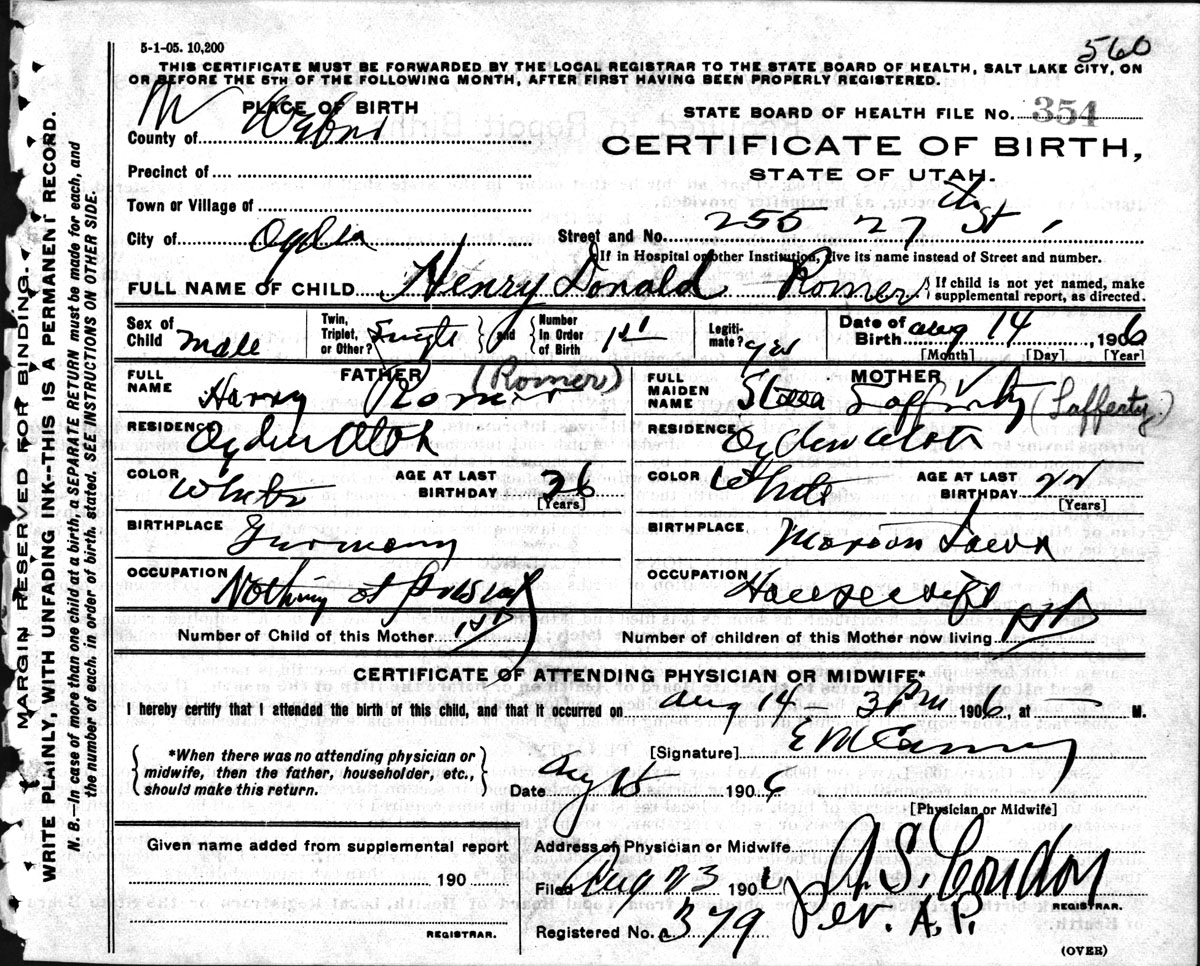 5-1-05. 10,200
560
THIS CERTIFICATE MUST BE FORWARDED BY THE LOCAL REGISTRAR TO THE STATE BOARD OF HEALTH, SALT LAKE CITY, ON
OR BEFORE THE 5TH OF THE FOLLOWING MONTH, AFTER FIRST HAVING BEEN PROPERLY REGISTERED.
M
PLACE OF BIRTH
County of Weber
Precinct of
Town or Village of
City of Ogden
STATE BOARD OF HEALTH FILE No. 354
CERTIFICATE OF BIRTH,
STATE OF UTAH.
Street and No. 255 27th St.
If in Hospital or other Institution, give its name instead of Street and number.
FULL NAME OF CHILD Henry Donald Romer { If child is not yet named, make
supplemental report, as directed.
Sex of Child male
Twin, Triplet, or Other? Single } and { Number in Order of Birth 1st
Legiti-mate? yes
Date of Birth Aug 14, 1906
[Month] [Day] [Year]
FATHER
FULL NAME Harry Romer (Romer)
RESIDENCE Ogden Utah
COLOR White AGE AT LAST BIRTHDAY 26 [Years]
BIRTHPLACE Germany
OCCUPATION Nothing at Present
MOTHER
FULL MAIDEN NAME Lafferty (Lafferty)
RESIDENCE Ogden Utah
COLOR White AGE AT LAST BIRTHDAY 22 [Years]
BIRTHPLACE Iowa
OCCUPATION Housewife
Number of Child of this Mother 1st
Number of children of this Mother now living 1st
CERTIFICATE OF ATTENDING PHYSICIAN OR MIDWIFE*
I hereby certify that I attended the birth of this child, and that it occurred on Aug 14 – 3 PM 1906, at M.
{ *When there was no attending physician or
midwife, then the father, householder, etc.,
should make this return. }
[Signature] E M
Date Aug 15 1906
[Physician or Midwife]
Given name added from supplemental report
190
REGISTRAR.
Address of Physician or Midwife
Filed Aug 23 1906 A.S. Condon
REGISTRAR.
Registered No. 379 Per. A.P.
(OVER)
MARGIN RESERVED FOR BINDING.
WRITE PLAINLY, WITH UNFADING INK--THIS IS A PERMANENT RECORD.
N. B.—In case of more than one child at a birth, a SEPARATE RETURN must be made for each, and
the number of each, in order of birth, stated. SEE INSTRUCTIONS ON OTHER SIDE.